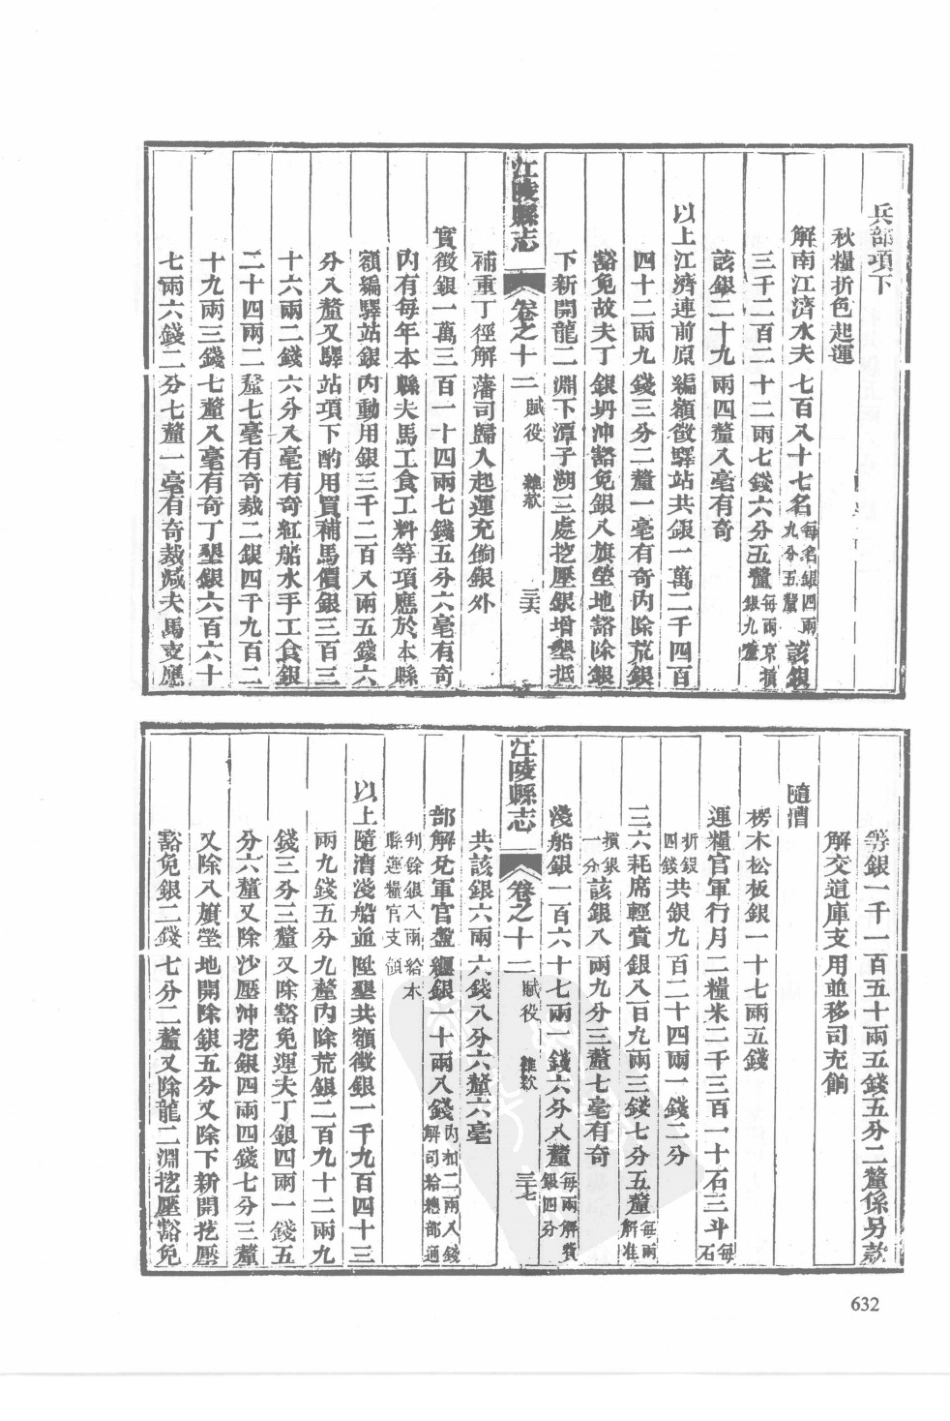 兵部項下
秋糧折色起運
解南江濟水夫七百八十七名每名銀四兩九分五釐該銀
三千二百二十二兩七錢六分五釐每兩京損銀九釐
該銀二十九兩四釐八毫有奇
以上江濟連前原編額徵驛站共銀一萬二千四百
四十二兩九錢三分二釐一毫有奇內除荒銀
豁免故夫丁銀坍沖豁免銀八旗塋地豁除銀
下新開龍二淵下潭子湖三處挖壓銀增墾抵
補重丁徑解藩司歸入起運充餉銀外
實徵銀一萬三百一十四兩七錢五分六毫有奇
內有每年本縣夫馬工食工料等項應於本縣
額編驛站銀內動用銀三千二百八兩五錢六
分八釐又驛站項下酌用買補馬價銀三百三
十六兩二錢六分八毫有奇紅船水手工食銀
二十四兩二釐七毫有奇裁二銀四千九百二
十九兩三錢七釐八毫有奇丁墾銀六百六十
七兩六錢二分七釐一毫有奇裁減夫馬支應
江陵縣志 卷之十二 賦役 雜款 三六
等銀一千一百五十兩五錢五分二釐係另款
解交道庫支用並移司充餉
隨漕
楞木松板銀一十七兩五錢
運糧官軍行月二糧米二千三百一十石三斗每石
折銀四錢共銀九百二十四兩一錢二分
三六耗席輕賫銀八百九兩三錢七分五釐每兩解准
損銀一分該銀八兩九分三釐七毫有奇
淺船銀一百六十七兩一錢六分八釐每兩解費銀四分
共該銀六兩六錢八分六釐六毫
部解兌軍官盤纏銀二十兩八錢內扣二兩八錢解司給總部通
判餘銀八兩給本縣運糧官支領
以上隨漕淺船並陞墾共額徵銀一千九百四十三
兩九錢五分九釐內除荒銀二百九十二兩九
錢三分三釐又除豁免運夫丁銀四兩一錢五
分六釐又除沙壓沖挖銀四兩四錢七分三釐
又除八旗塋地開除銀五分又除下新開挖壓
豁免銀二錢七分二釐又除龍二淵挖壓豁免
江陵縣志 卷之十二 賦役 雜款 三七
632